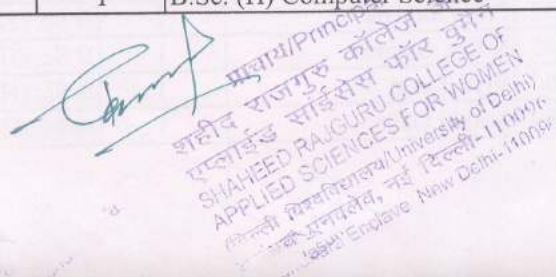 1 B.Sc. (H) Computer Science
प्राचार्य/Principal
शहीद राजगुरु कॉलेज ऑफ
एप्लाईड साईंसेस फॉर वुमेन
SHAHEED RAJGURU COLLEGE OF
APPLIED SCIENCES FOR WOMEN
(दिल्ली विश्वविद्यालय/University of Delhi)
एन्क्लेव, नई दिल्ली-110096
Enclave New Delhi-110096